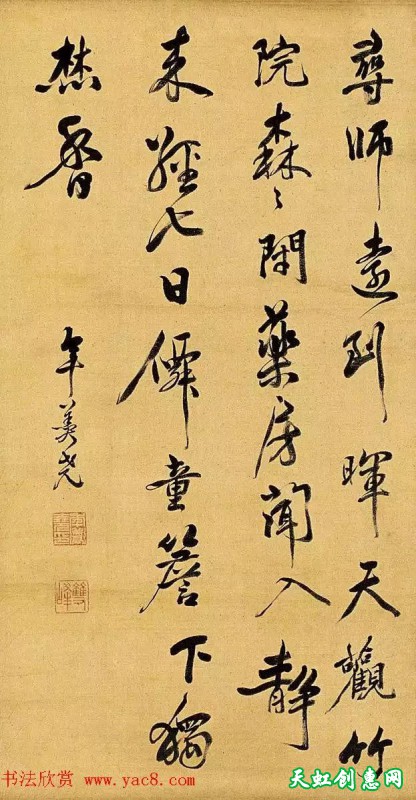 尋師遠到暉天觀竹
院森〻閉藥房聞入靜
来經七日僊童簷下獨
焚香
年羹堯
雙峰
书法欣赏 www.yac8.com
天虹创惠网